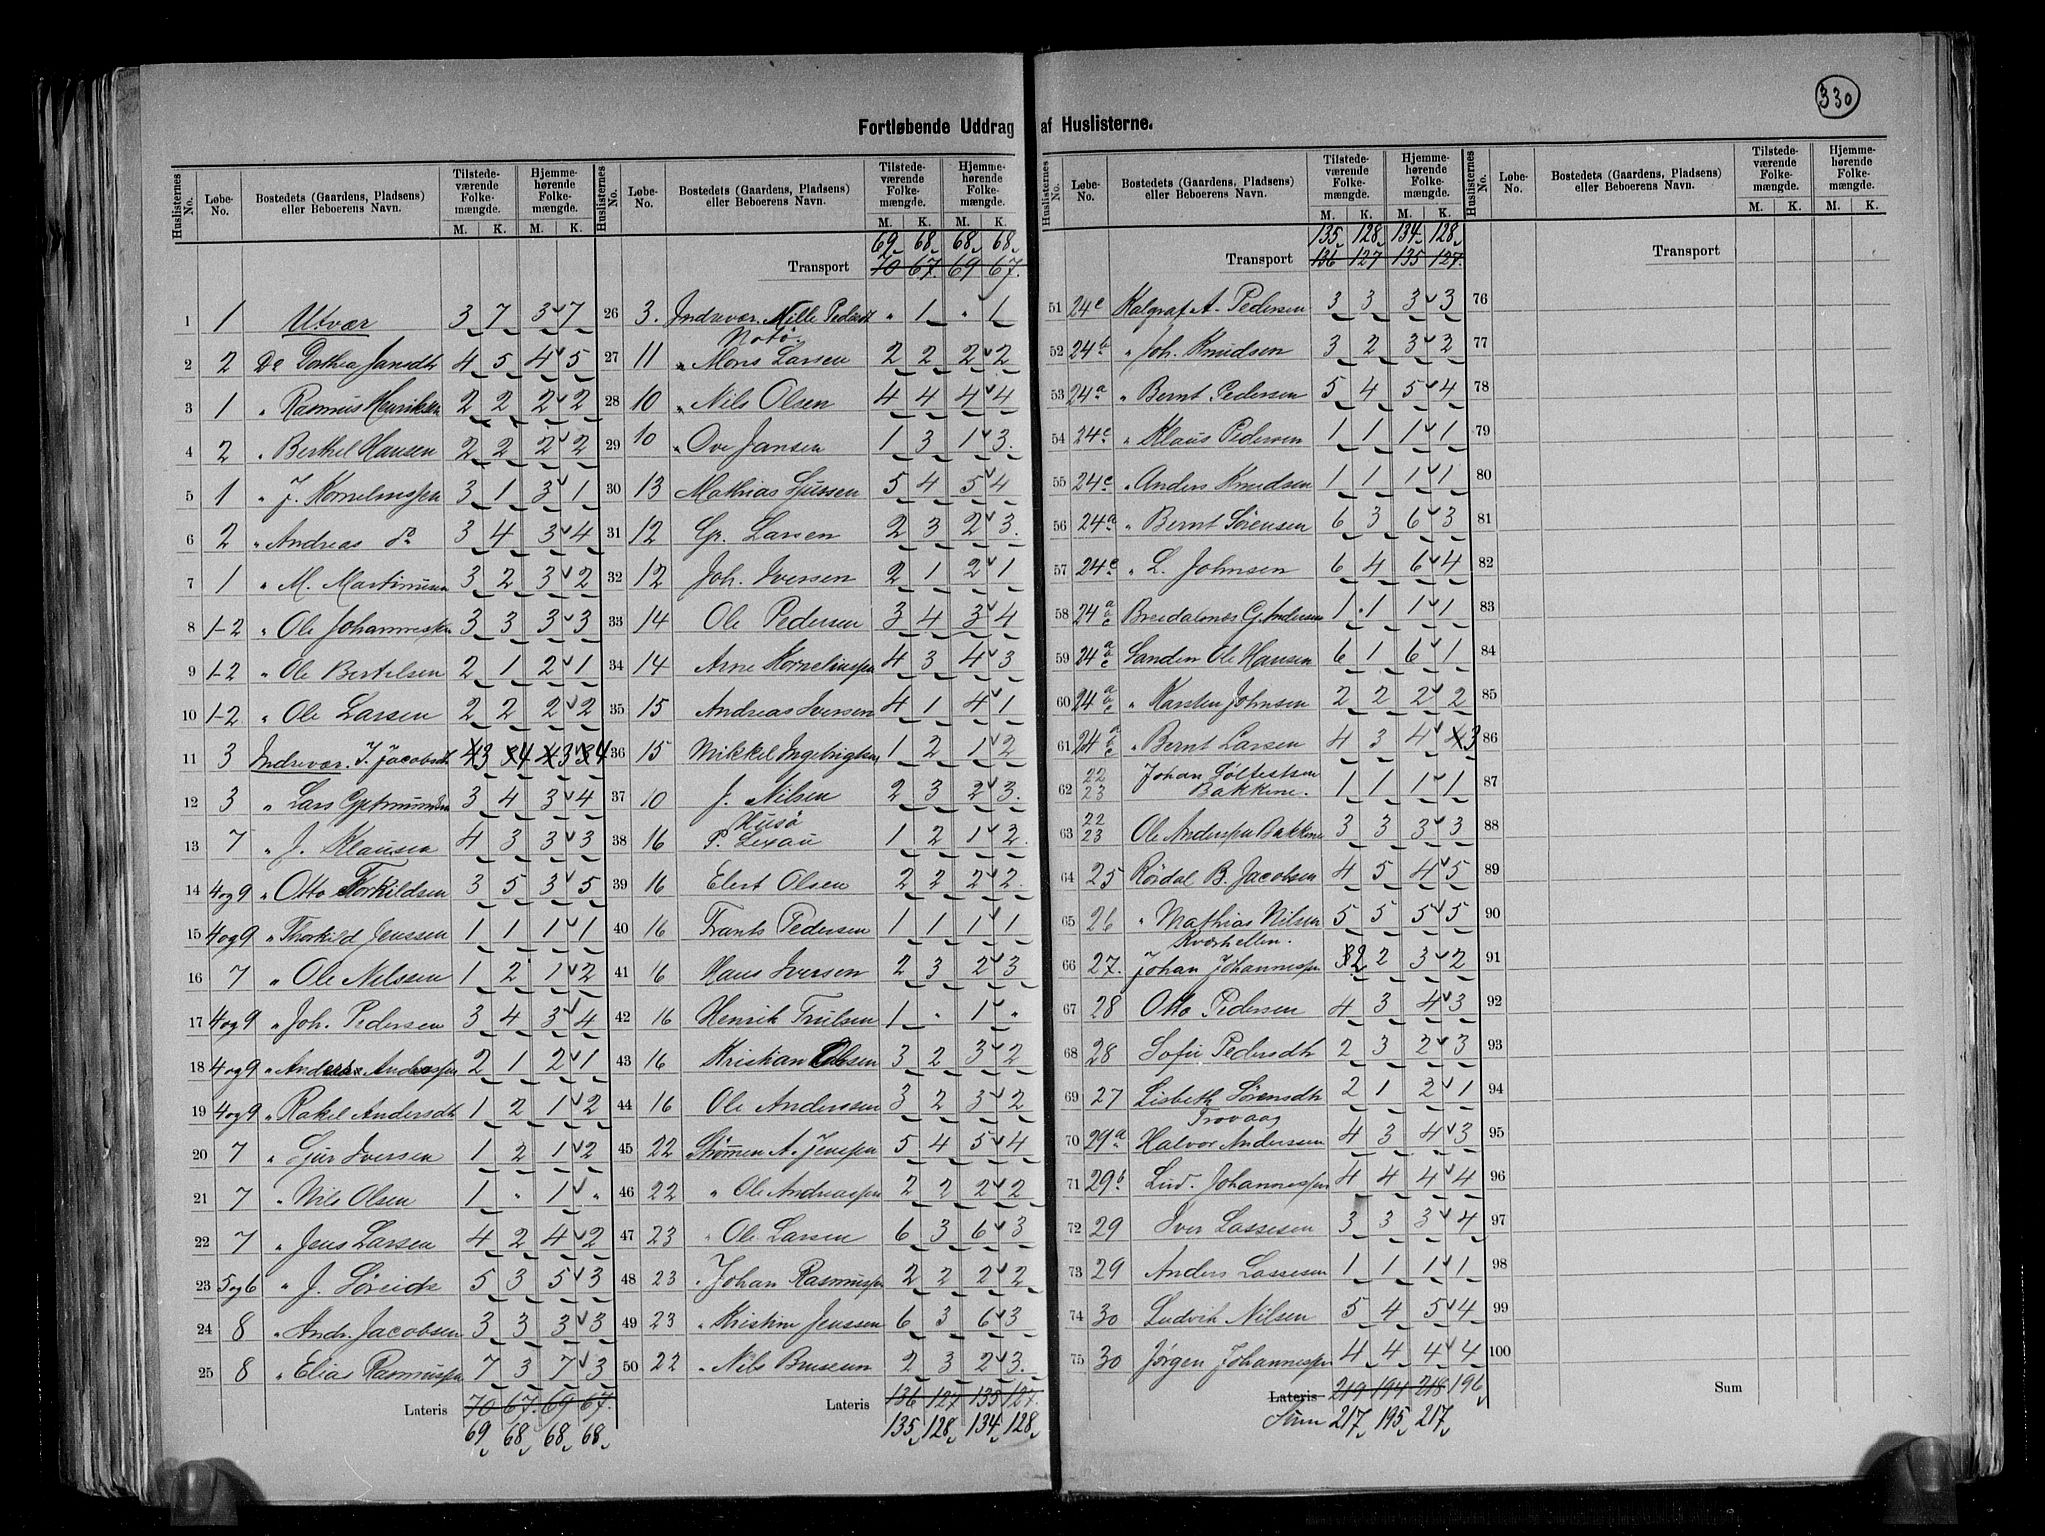 330
Fortløbende Uddrag af Huslisterne.
Huslisternes No. Løbe-No. Bostedets (Gaardens, Pladsens) eller Beboerens Navn. Tilstedeværende Folkemængde. Hjemmehørende Folkemængde.
M. K. M. K.
1 1 Utvær 3 7 3 7
2 2 Do Dorthea Jansdtr 4 5 4 5
3 1 " Rasmus Henriksen 2 2 2 2
4 2 " Berthel Hansen 2 2 2 2
5 1 " J. Kornelinssen 3 1 3 1
6 2 " Andreas do 3 4 3 4
7 1 " M. Martinusen 3 2 3 2
8 1-2 " Ole Johannessen 3 3 3 3
9 1-2 " Ole Bertelsen 2 1 2 1
10 1-2 " Ole Larsen 2 2 2 2
11 3 Indrevær. J. Jacobsdt 3 4 3 4
12 3 " Lars 3 4 3 4
13 7 " J. Klausen 4 3 3 3
14 4og9 " Otto Torkildsen 3 5 3 5
15 4og9 " Thorkild Jenssen 1 1 1 1
16 7 " Ole Nilssen 1 2 1 2
17 4og9 " Joh. Pedersen 3 4 3 4
18 4og9 " Anders Anderssen 2 1 2 1
19 4og9 " Rakel Andersdt 1 2 1 2
20 7 " Sjur Iversen 1 2 1 2
21 7 " Nils Olsen 1 " 1 "
22 7 " Jens Larsen 4 2 4 2
23 5og6 " J. Søreide 5 3 5 3
24 8 " Andr. Jacobsen 3 3 3 3
25 8 " Elias Rasmussen 7 3 7 3
Lateris 70 67 69 67
69 68 68 68
Huslisternes No. Løbe-No. Bostedets (Gaardens, Pladsens) eller Beboerens Navn. Tilstedeværende Folkemængde. Hjemmehørende Folkemængde.
M. K. M. K.
69 68 68 68
Transport 70 67 69 67
26 3. Indrevær. Nille Pedersdt " 1 " 1
Notø
27 11 " Mons Larsen 2 2 2 2
28 10 " Nils Olsen 4 4 4 4
29 10 " Ove Jansen 1 3 1 3
30 13 Mathias Sjurssen 5 4 5 4
31 12 Gr. Larsen 2 3 2 3
32 12 Joh. Iversen 2 1 2 1
33 14 Ole Pedersen 3 4 3 4
34 14 Arne Kornelinssen 4 3 4 3
35 15 Andreas Iversen 4 1 4 1
36 15 Mikkel Ingebrigtsen 1 2 1 2
37 10 J. Nilsen 2 3 2 3
Husø
38 16 P. Lexau 1 2 1 2
39 16 Elert Olsen 2 2 2 2
40 16 Frants Pedersen 1 1 1 1
41 16 Hans Iversen 2 3 2 3
42 16 Henrik Trulsen 1 " 1 "
43 16 Kristian Olsen 3 2 3 2
44 16 Ole Anderssen 3 2 3 2
45 22 Strømen A. Jenssen 5 4 5 4
46 22 " Ole Andreassen 2 2 2 2
47 23 " Ole Larsen 6 3 6 3
48 23 " Johan Rasmussen 2 2 2 2
49 23 " Kristine Jenssen 6 3 6 3
50 22 " Nils 2 3 2 3
Lateris 136 127 135 127
135 128 134 128
Huslisternes No. Løbe-No. Bostedets (Gaardens, Pladsens) eller Beboerens Navn. Tilstedeværende Folkemængde. Hjemmehørende Folkemængde.
M. K. M. K.
135 128 134 128
Transport 136 127 135 127
51 24c Kalgraf A. Pedersen 3 3 3 3
52 24a " Joh. Knudsen 3 2 3 2
53 24a " Bernt Pedersen 5 4 5 4
54 24c " Klaus Pedersen 1 1 1 1
55 24c " Anders Knudsen 1 1 1 1
56 24a " Bernt Sørensen 6 3 6 3
57 24c " L. Johnsen 6 4 6 4
58 24 a b c Breidalsnes G. Andersen 1 1 1 1
59 24 a b c Sanden Ole Hansen 6 1 6 1
60 24 a b c " Karsten Johnsen 2 2 2 2
61 24 a b c " Bernt Larsen 4 3 4 3
62 22 23 Johan Bakkene. 1 1 1 1
63 22 23 Ole Anderssen Bakkene 3 3 3 3
64 25 Røidal B. Jacobsen 4 5 4 5
65 26 " Mathias Nilsen 5 5 5 5
Kvernhellen.
66 27. Johan Johannessen 2 2 3 2
67 28 Otto Pedersen 4 3 4 3
68 28 Sofie Pedersdtr 2 3 2 3
69 27 Lisbeth Sørensdtr 2 1 2 1
Trovaag
70 29a Halvor Anderssen 4 3 4 3
71 29b Lud. Johannessen 4 4 4 4
72 29 Iver Lassesen 3 3 3 4
73 29 Anders Lassesen 1 1 1 1
74 30 Ludvik Nilsen 5 4 5 4
75 30 Jørgen Johannessen 4 4 4 4
Lateris 219 194 218 196
Sum 217 195 217
Huslisternes No. Løbe-No. Bostedets (Gaardens, Pladsens) eller Beboerens Navn. Tilstedeværende Folkemængde. Hjemmehørende Folkemængde.
M. K. M. K.
Transport
76
77
78
79
80
81
82
83
84
85
86
87
88
89
90
91
92
93
94
95
96
97
98
99
100
Sum